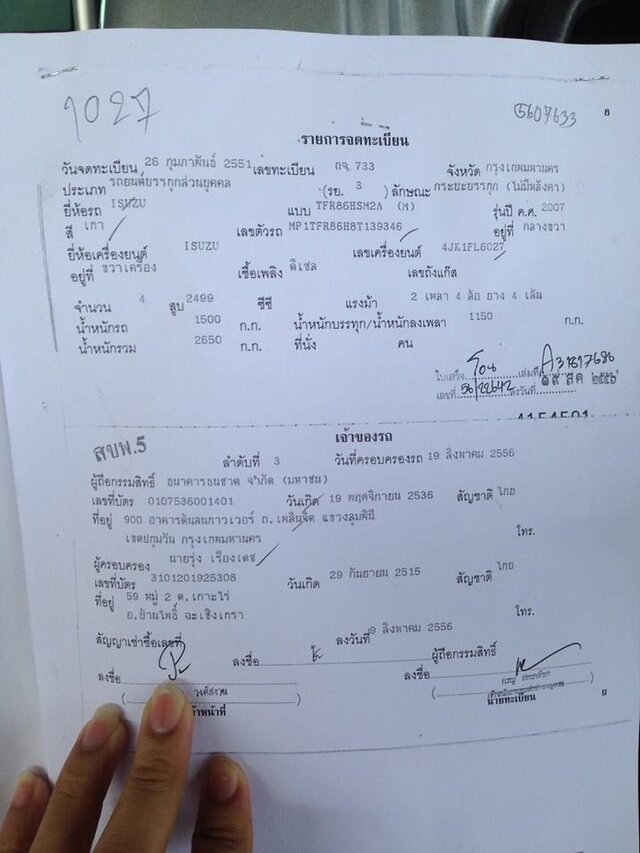 1027
5607633
รายการจดทะเบียน
วันจดทะเบียน 26 กุมภาพันธ์ 2551 เลขทะเบียน ถจ 733 จังหวัด กรุงเทพมหานคร
ประเภท รถยนต์บรรทุกส่วนบุคคล (รย. 3 ) ลักษณะ กระบะบรรทุก (ไม่มีหลังคา)
ยี่ห้อรถ ISUZU แบบ TFR86HSM2A (M) รุ่นปี ค.ศ. 2007
สี เทา เลขตัวรถ MP1TFR86H8T139346 อยู่ที่ กลางขวา
ยี่ห้อเครื่องยนต์ ISUZU เลขเครื่องยนต์ 4JK1FL6027
อยู่ที่ ขวาเครื่อง เชื้อเพลิง ดีเซล เลขถังแก๊ส
จำนวน 4 สูบ 2499 ซีซี แรงม้า 2 เพลา 4 ล้อ ยาง 4 เส้น
น้ำหนักรถ 1500 ก.ก. น้ำหนักบรรทุก/น้ำหนักลงเพลา 1150 ก.ก.
น้ำหนักรวม 2650 ก.ก. ที่นั่ง คน
ใบเสร็จ โอน เล่มที่ A31817686
เลขที่ 56/22642 ลงวันที่ ๑๙ สค ๒๕๕๖
เจ้าของรถ
สบพ.5
ลำดับที่ 3 วันที่ครอบครองรถ 19 สิงหาคม 2556
ผู้ถือกรรมสิทธิ์ ธนาคารธนชาต จำกัด (มหาชน)
เลขที่บัตร 0107536001401 วันเกิด 19 พฤศจิกายน 2536 สัญชาติ ไทย
ที่อยู่ 900 อาคารต้นสนทาวเวอร์ ถ.เพลินจิต แขวงลุมพินี
เขตปทุมวัน กรุงเทพมหานคร โทร.
ผู้ครอบครอง นายรุ่ง เรืองเดช
เลขที่บัตร 3101201925308 วันเกิด 29 กันยายน 2515 สัญชาติ ไทย
ที่อยู่ 59 หมู่ 2 ต.เกาะไร่
อ.บ้านโพธิ์ ฉะเชิงเทรา โทร.
สัญญาเช่าซื้อเลขที่ ลงวันที่ 9 สิงหาคม 2556 ผู้ถือกรรมสิทธิ์
ลงชื่อ ลงชื่อ ลงชื่อ
นายทะเบียน